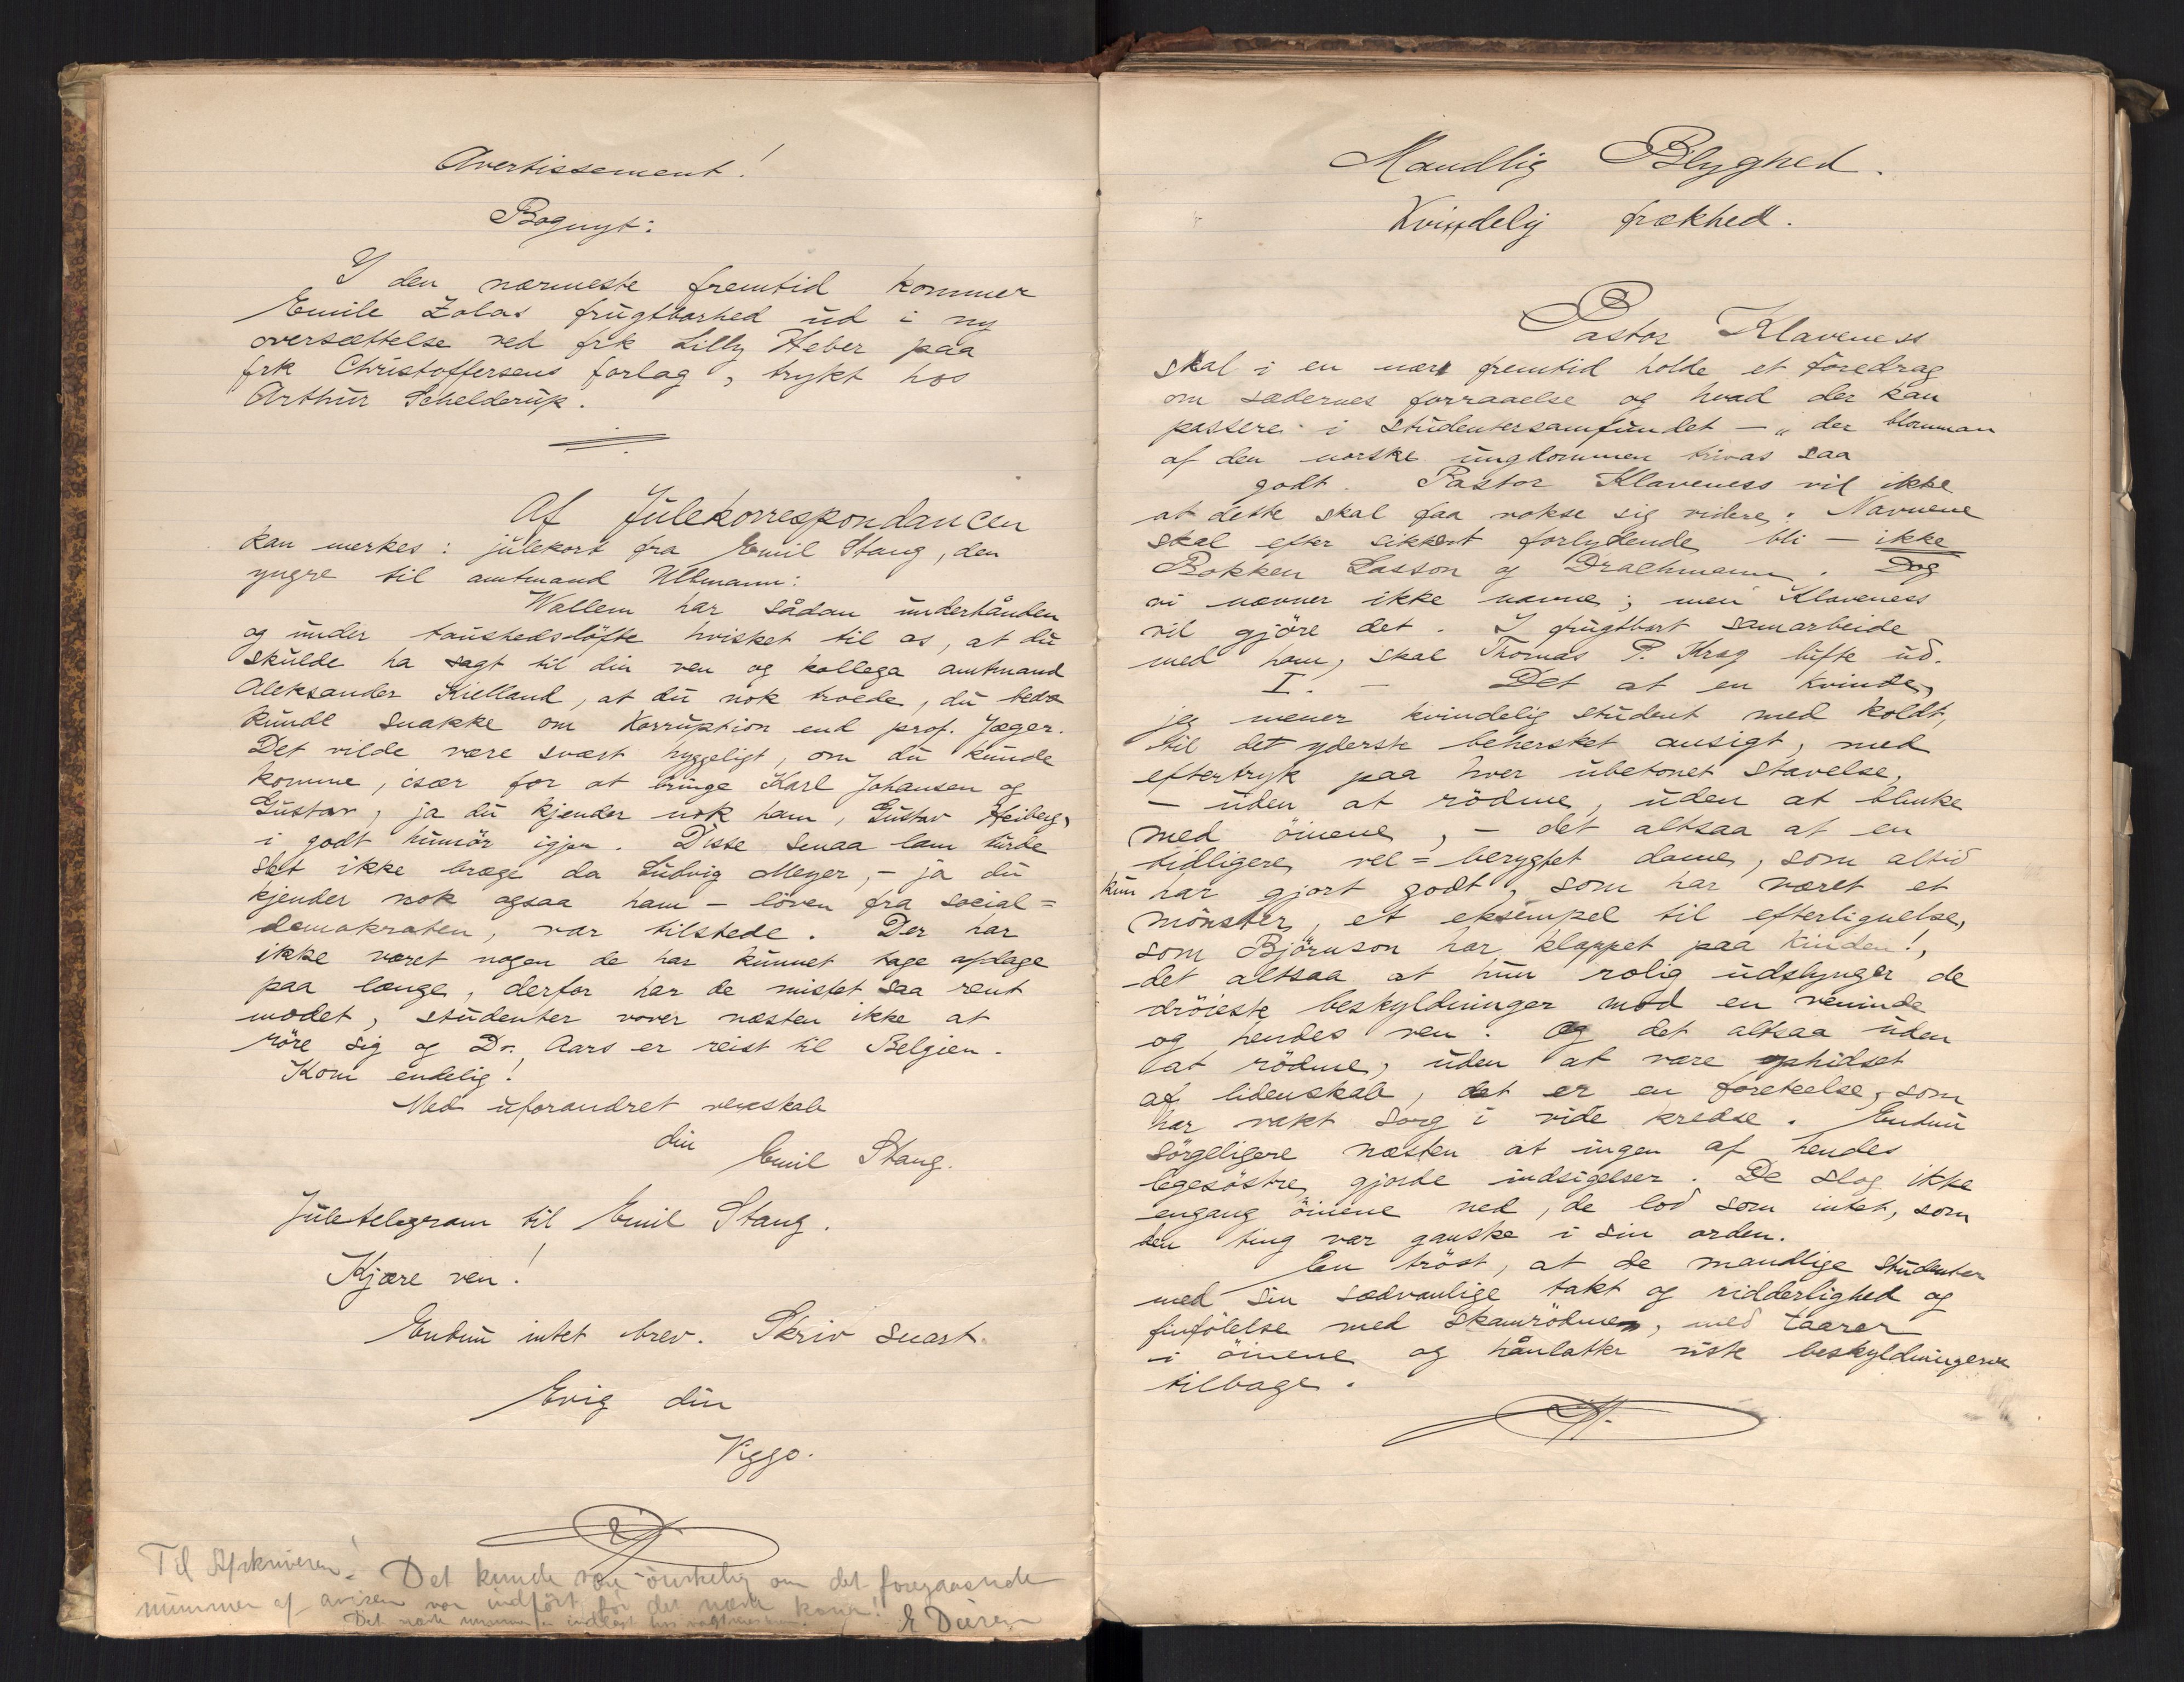 Avertissement!
Bognyt:
I den nærmeste fremtid kommer
Emile Zolas frugtbarhed ud i ny
oversættelse ved frk Lilly Heber paa
frk Christoffersens forlag, trykt hos
Arthur Schelderup.
Af Julekorrespondancen
kan merkes: julekort fra Emil Stang, den
yngre til amtmand Ullmann:
Wallem har sådan underhånden
og under taushedsløfte hvisket til os, at du
skulde ha sagt til din ven og kollega amtmand
Aleksander Kielland, at du nok troede, du bedre
kunde snakke om Korruption end prof. Jæger.
Det vilde være svært hyggeligt, om du kunde
komme, især for at bringe Karl Johansen og
Gustav, ja du kjender nok ham, Gustav Heiberg,
i godt humör igjen. Disse smaa lam turde
slet ikke bræge da Ludvig Meyer, – ja du
kjender nok ogsaa ham – löven fra social=
demokraten, var tilstede. Der har
ikke været nogen de har kunnet tage afdage
paa længe, derfor har de mistet saa rent
modet, studenter vover næsten ikke at
röre sig og Dr. Aars er reist til Belgien.
Kom endelig!
Med uforandret venskab
din
Emil Stang.
Juletelegram til Emil Stang.
Kjære ven!
Endnu intet brev. Skriv snart.
Evig din
Viggo.
Til Afskriveren! Det kunde være önskelig om det foregaaende
nummer af avisen var indfört för det næste kom!
Det næste nummer er indlöst hos
E
Mandlig Blyghed.
Kvindelig frækhed.
Pastor Klaveness
skal i en nær fremtid holde et foredrag
om sædernes forraaelse og hvad der kan
passere i studentersamfundet – "der blomman
af den norske ungdommen trivas saa
godt. Pastor Klaveness vil ikke
at dette skal faa vokse sig videre. Navnene
skal efter sikkert forlydende bli – ikke
Bokken Lasson og Drachmann. Dog
vi nævner ikke navne; men Klaveness
vil gjöre det. I frugtbart samarbeide
med ham, skal Thomas P. Krag lufte ud.
I. – Det at en kvinde,
jeg mener kvindelig student med koldt,
til det yderste behersket ansigt, med
eftertryk paa hver ubetonet stavelse,
– uden at rödme, uden at blinke
med öinene, – det altsaa at en
tidligere vel=berygtet dame, som altid
kun har gjort godt, som har været et
mönster, et eksempel til efterlignelse,
som Björnson har klappet paa kinden!,
det altsaa at hun rolig udslynger de
dröieste beskyldninger mod en veninde
og hendes ven. Og det altsaa uden
at rödme, uden at være ophidset
af lidenskab, det er en foreteelse, som
har vakt sorg i vide kredse. Endnu
sörgeligere næsten at ingen af hendes
legesöstre gjorde indsigelser. De slog ikke
engang öinene ned, de lod som intet, som
den ting var ganske i sin orden.
En tröst, at de mandlige studenter
med sin sædvanlige takt og ridderlighed og
finfölelse med skamrödmen, med taarer
i öinene og hånlatter viste beskyldningerne
tilbage.